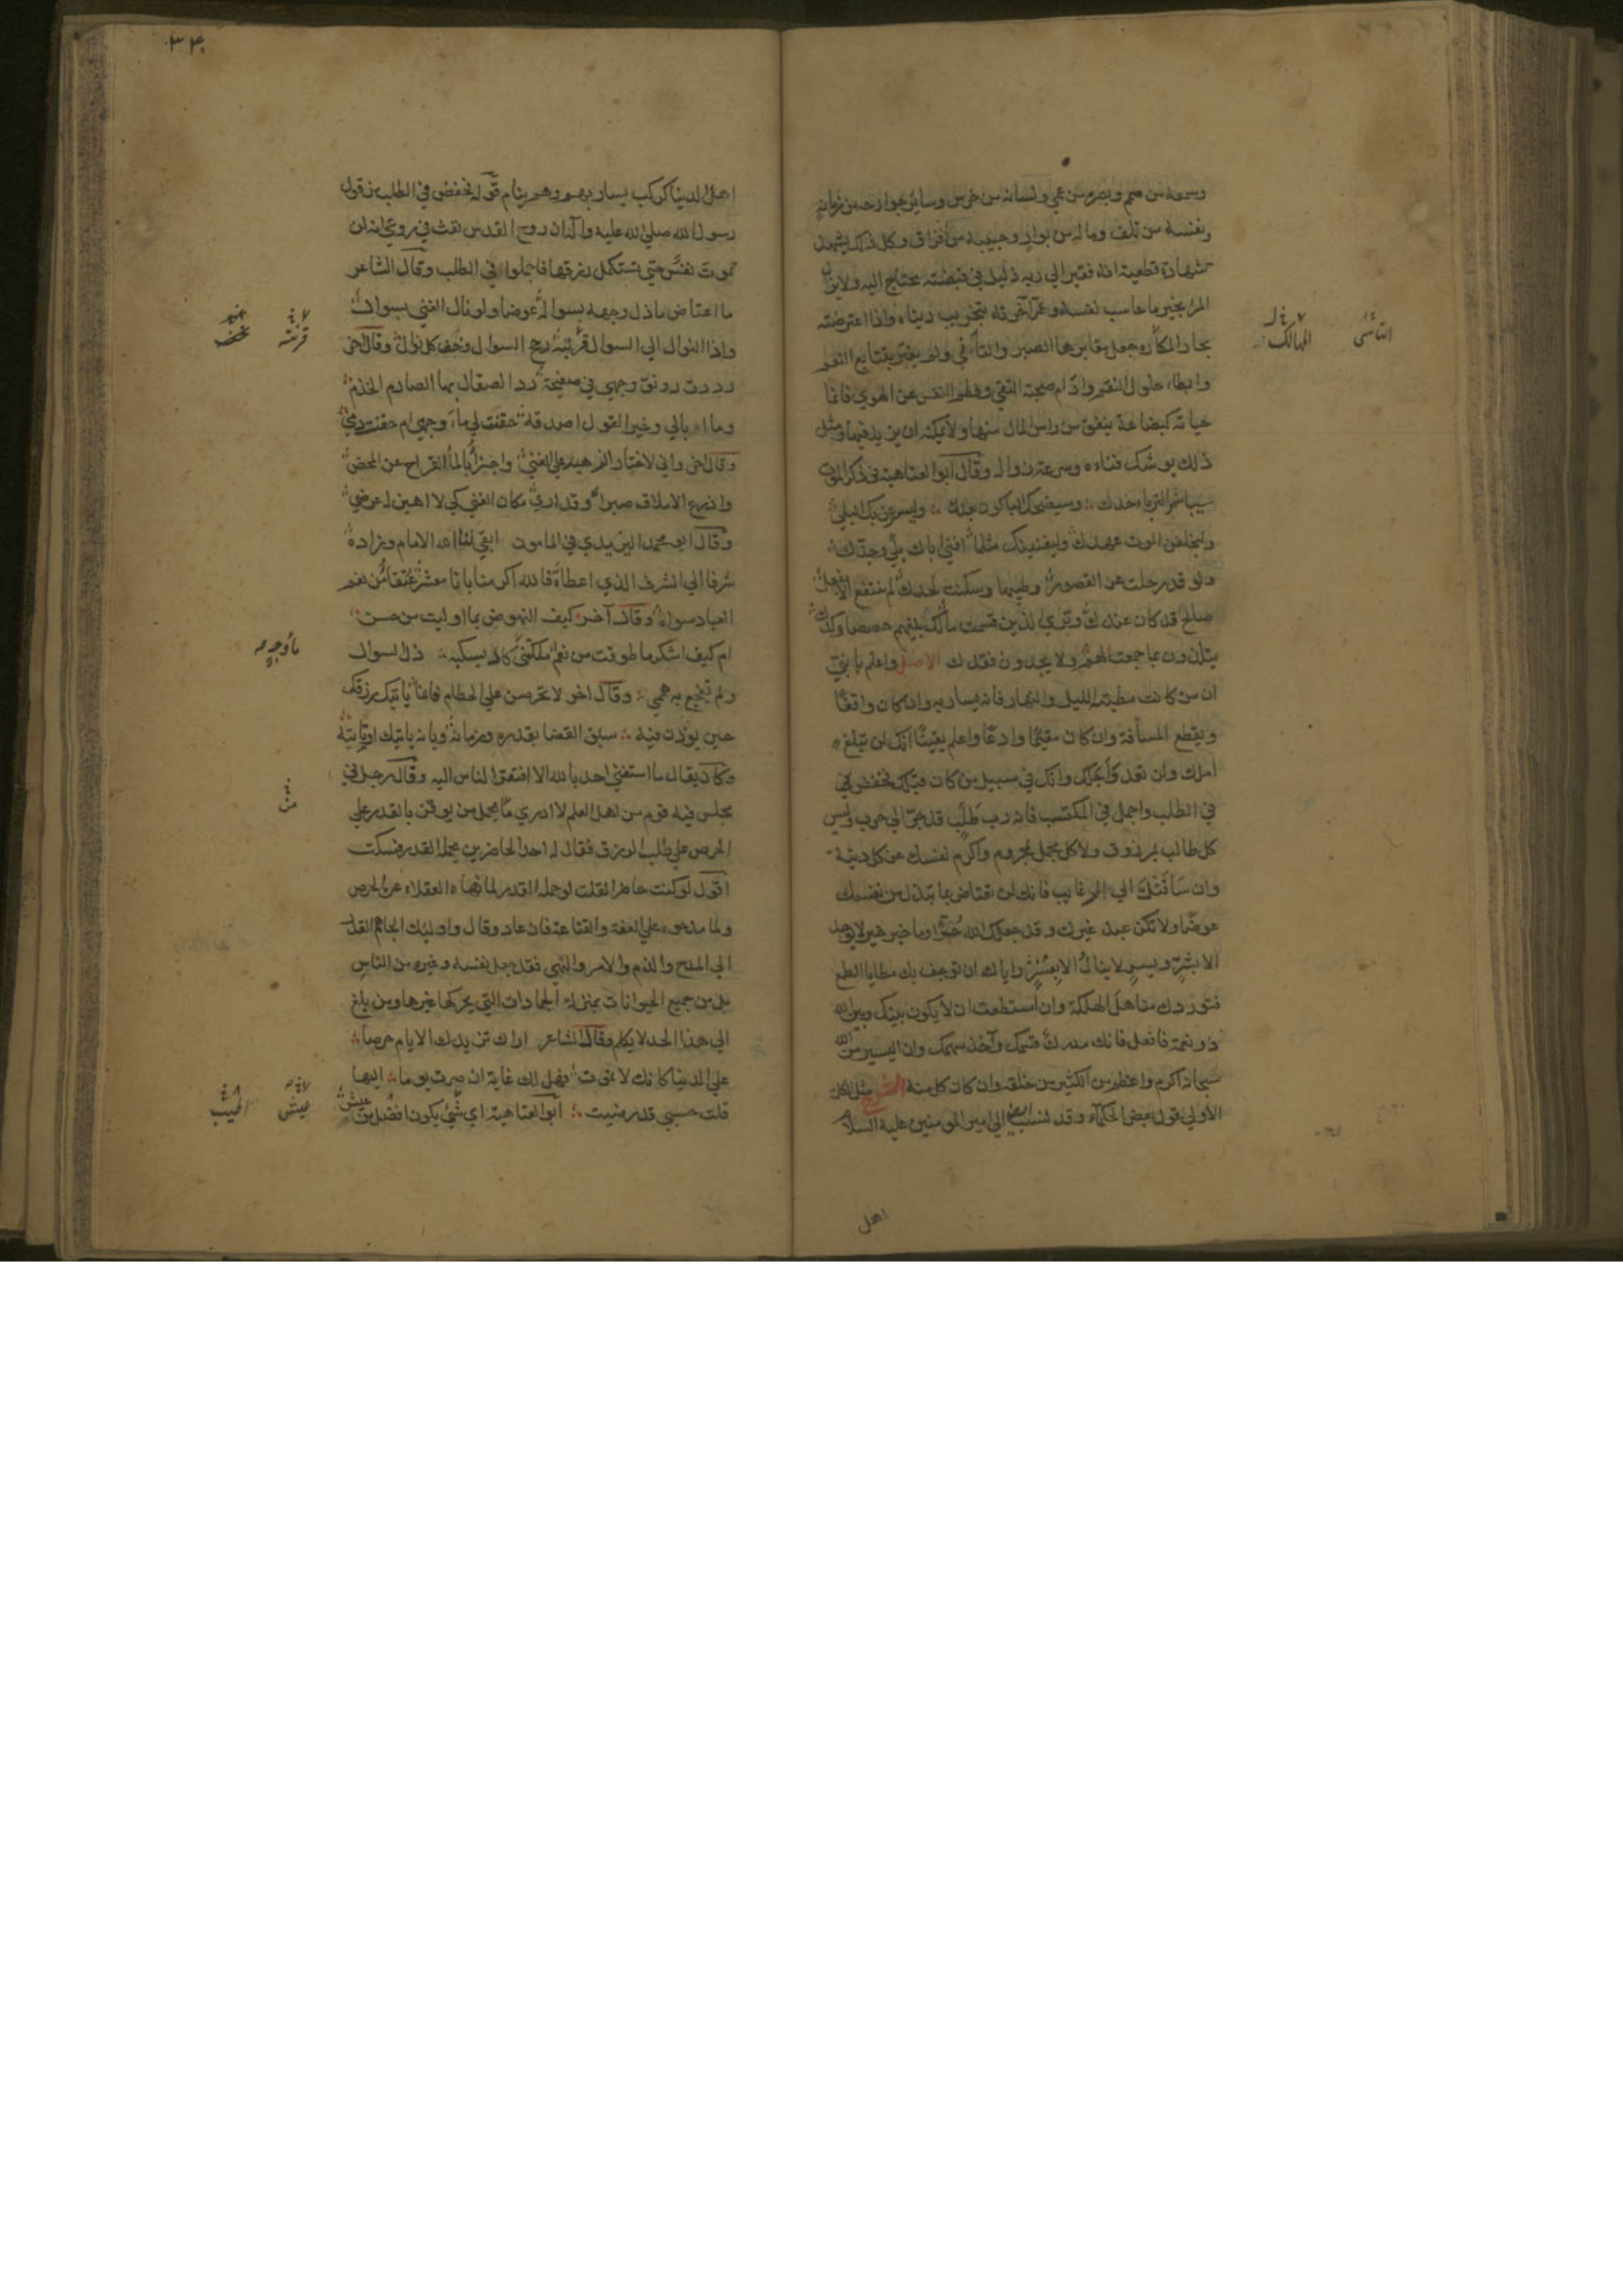 وسمعه من صمم وبصره من عمي ولسانه من خرس وساير جوارحه من زمانة
ونفسه من تلف وماله من بوار وحبيبه من فراق وكل ذلك يشهد
شهادة قطعية انه فقير الي ربه ذليل في قبضته محتاج اليه ولايزال
المرء بخير ما حاسب نفسه وعمر آخرته بتخريب دنياه واذا اعترضته
بحار المكاره جعل معابرها الصبر والتأسي ولم يغتر بتتابع النعم
وابطاء حلول النقم وادام صحبة التقي وفطم النفس عن الهوي فانما
حياته كبضاعة ينفق من راس المال منها ولا يمكنه ان يزيد فيها ومثل
ذلك يوشك فناءه وسرعة زواله وقال ابو العتاهية في ذكر الموت
سيباشر الترباء خدك وسيضحك الباكون بعدك وليسرعن بك البلي
وليخلفن الموت عهدك وليفنينك مثلما افني اباك بلي وجدك
ولو قد رحلت عن القصور وطيبها وسكنت لحدك لم تنتفع الا بفعل
صالح قد كان عندك وتري الذين قسمت مالك بينهم حصصا وكدك
يتلذون بما جمعت لهم ولا يجدون فقدك الاصل واعلم يا بني
ان من كانت مطيته الليل والنهار فانه يسار به وان كان واقفا
ويقطع المسافة وان كان مقيما وادعا واعلم يقينا انك لن تبلغ
املك ولن تعدو اجلك وانك في سبيل من كان قبلك فخفض في
في الطلب واجمل في المكتسب فانه رب طلب قد جر الي حرب وليس
كل طالب بمرزوق ولا كل مجمل بمحروم واكرم نفسك عن كل دنية
وان ساقتك الي الرغايب فانك لن تعتاض بما تبذل من نفسك
عوضا ولا تكن عبد غيرك وقد جعلك الله حرا وما خير خير لا يوجد
الا بشر ويسر لا ينال الا بعسر واياك ان توجف بك مطايا الطمع
فتوردك مناهل الهلكة وان استطعت ان لا يكون بينك وبين الله
ذو نعمة فافعل فانك مدرك قسمك وآخذ سهمك وان اليسير من الله
سبحانه اكرم واعظم من الكثير من خلقه وان كان كل منه الشرح مثل الكلمة
الاولي قول بعض الحكماء وقد نسب ايضا الي امير المومنين عليه السلام
اهل
التأسي
المهالك
٣٣٠
اهل الدنيا كركب يسار بهم وهم ينام قوله فخفض في الطلب من قول
رسول الله صلي الله عليه وآله ان روح القدس نفث في روعي انه لن
تموت نفس حتي تستكمل رزقها فاجملوا في الطلب وقال الشاعر
ما اعتاض باذل وجهه بسواله عوضا ولو نال الغني بسوال
واذا النوال الي السوال قرنته رجح السوال وخف كل نوال وقال اخر
رددت رونق وجهي في صفيحته رد الصقال بها الصارم الخذم
وما ابالي وخير القول اصدقه حقنت لي ماء وجهي ام حقنت دمي
وقال اخر واني لاختار الزهيد علي الغني واجزأ بالماء القراح عن المحض
وادرع الاملاق صبرا وقد اري مكان الغني كي لا اهين له عرضي
وقال ابو محمد اليزيدي في المامون ابقي لنا الله الامام وزاده
شرفا الي الشرف الذي اعطاه فالله اكرمنا بانا معشر عتقاء من نعم
العباد سواه وقال آخر كيف النهوض بما اوليت من حسن
ام كيف اشكر ما طوقت من نعم ملكتني كاد يسكبه ذل السوال
ولم تفجع به هممي وقال اخر لا تحرصن علي الحطام فانما ياتيك رزقك
حين يوذن فيه سبق القضا بقدره وزمانه وبانه ياتيك اوتاتيه
وكان يقال ما استغني احد بالله الا افتقر الناس اليه وقال رجل في
مجلس فيه قوم من اهل العلم لا ادري ما يحمل من يوقن بالقدر علي
الحرص علي طلب الرزق فقال له احد الحاضرين يحمله القدر فسكت
اقول لو كنت حاضرا لقلت لو حمله القدر لما نهاه العقلاء عن الحرص
ولما مدحوه علي العفة والقناعة فان عاد وقال واوليك الجاهم القدر
الي المدح والذم والامر والنهي فقد جعل نفسه وغيره من الناس
بل من جميع الحيوانات بمنزلة الجمادات التي يحركها غيرها ومن بلغ
الي هذا الحد لا يكلم وقال الشاعر اراك تزيدك الايام حرصا
علي الدنيا كانك لا تموت فهل لك غاية ان صرت يوما اليها
قلت حسبي قد رضيت ابو العتاهية اي شي يكون افضل من عيش
قرنته
ماء وجهي
من
عيش